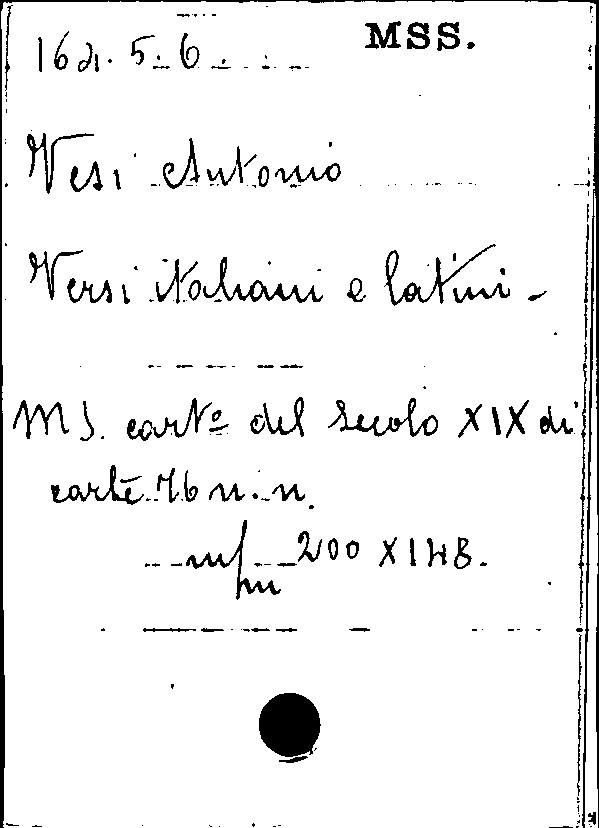 162. 5. 6. MSS.
Vesi Antonio
Versi italiani e latini -
MS. cartº del secolo XIX di
carte 76 n. n.
m/m 200 X 148.